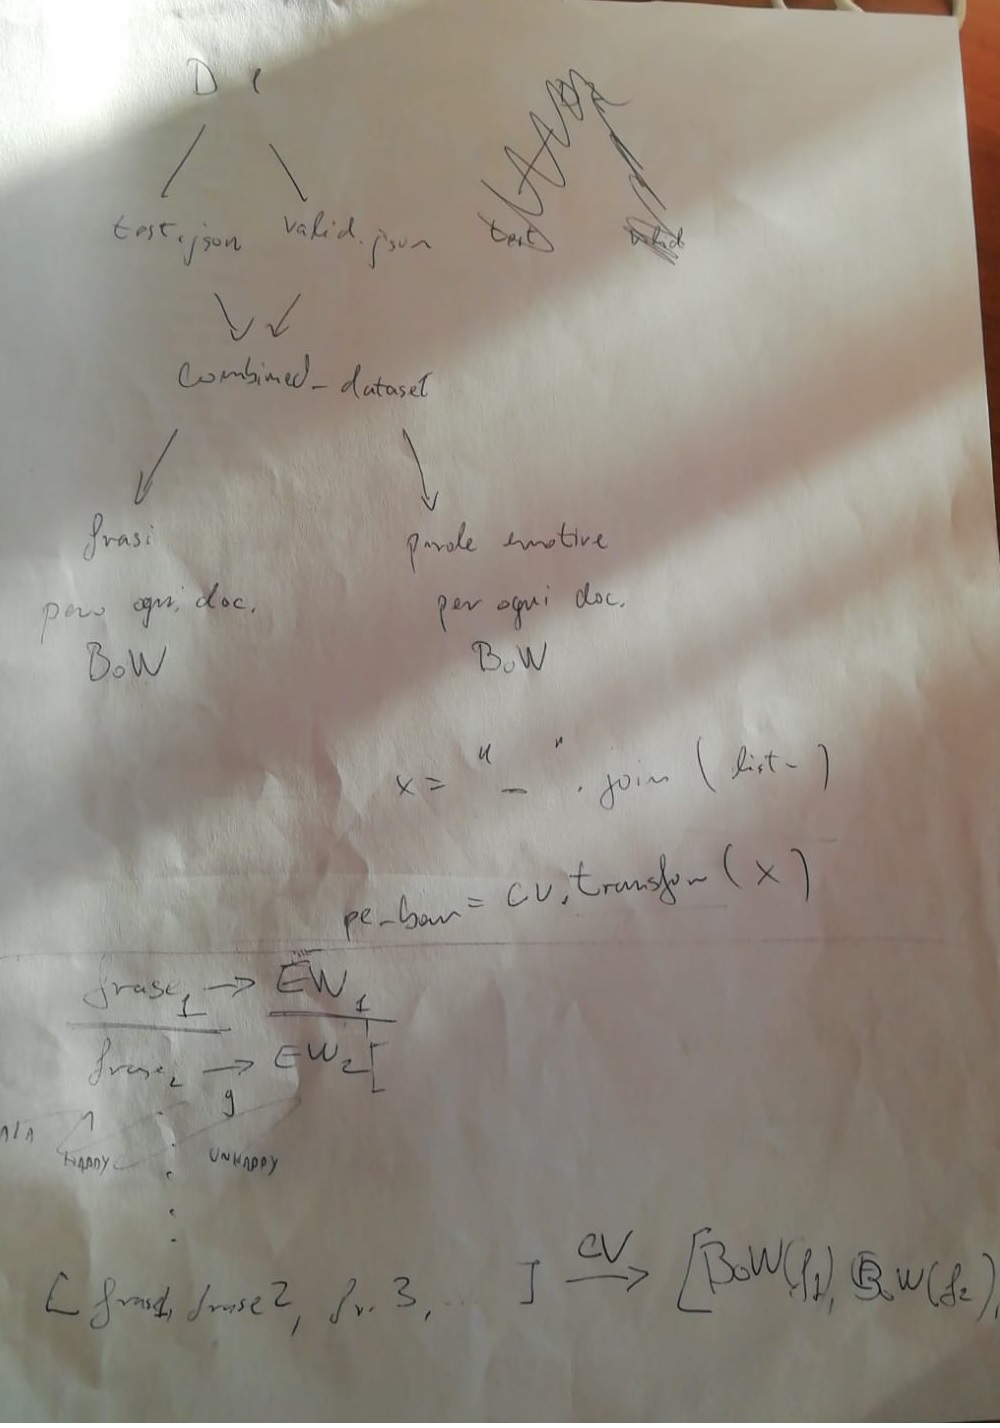 D 1
test.json valid.json test valid
combined_dataset
frasi parole emotive
per ogni doc. per ogni doc.
BoW BoW
x = " _ " . join ( list_ )
pe_bow = CV.transfom ( x )
frase1 → EW1
frase2 → EW2 [
HAPPY UNHAPPY
CV
[ frase1, frase2, fr. 3, ... ] → [BoW(f1), BoW(f2),